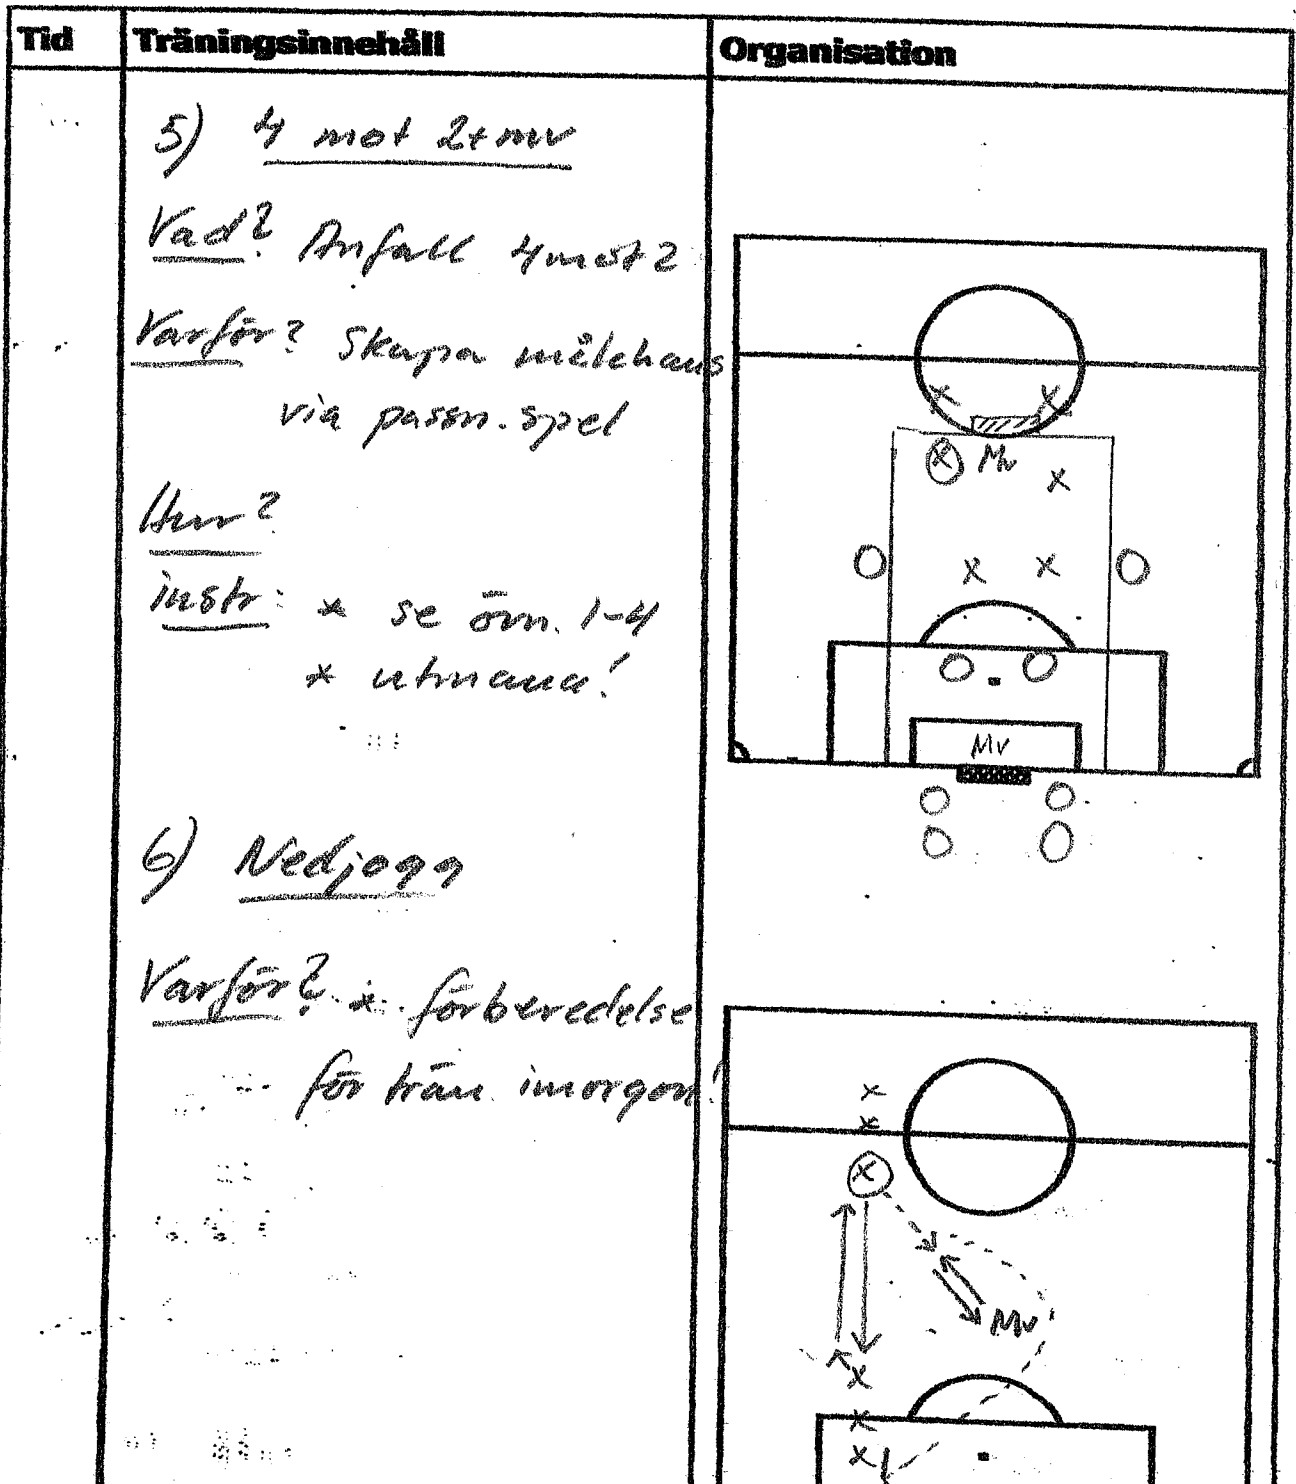 Tid Träningsinnehåll Organisation
5) 4 mot 2+mv
Vad? Anfall 4 mot 2
Varför? Skapa målchans
via passn. spel
Hur?
instr: * se övn. 1-4
* utmana!
6) Nedjogg
Varför? * förberedelse
för trän. imorgon!
x x
x Mv x
O x x O
O O
Mv
O O
O O
x
x
x
Mv
x
x
x